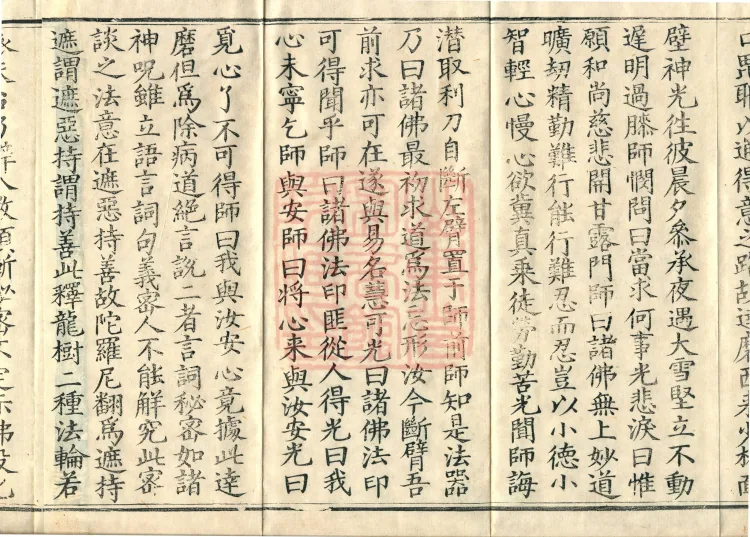 口思耶以道得意之路故達磨西来少林面
壁神光往彼晨夕叅承夜遇大雪堅立不動
遲明過膝師憫問曰當求何事光悲淚曰惟
願和尚慈悲開甘露門師曰諸佛無上妙道
曠劫精勤難行能行難忍而忍豈以小德小
智輕心慢心欲兾真乗徒勞勤苦光聞師誨
潜取利刀自斷左臂置于師前師知是法器
乃曰諸佛最初求道爲法忘形汝今斷臂吾
前求亦可在遂與易名慧可光曰諸佛法印
可得聞乎師曰諸佛法印匪從人得光曰我
心未寧乞師與安師曰将心来與汝安光曰
覓心了不可得師曰我與汝安心竟據此達
磨但爲除病道絶言說二者言詞秘密如諸
神呪雖立語言詞句義密人不能解究此密
談之法意在遮惡持善故陀羅尼翻爲遮持
遮謂遮惡持謂持善此釋龍樹二種法輪若